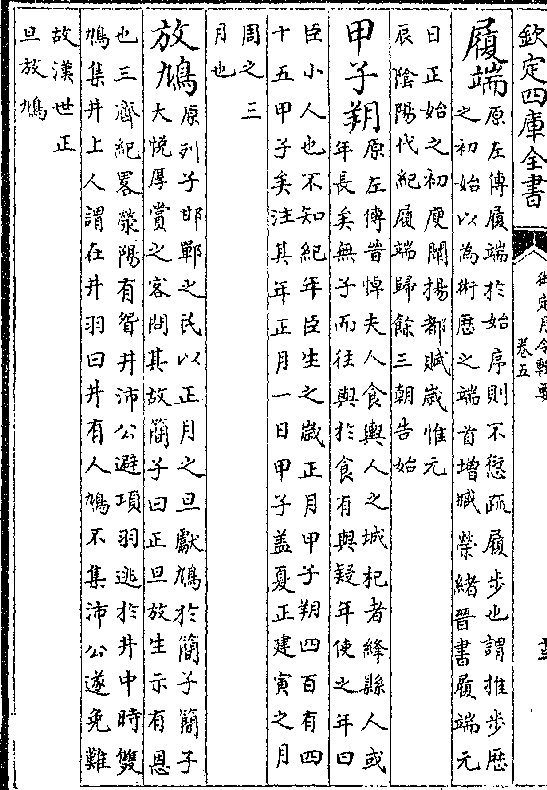 欽定四庫全書
御定月令輯要
卷五
履端原左傳履端於始序則不愆疏履步也謂推步歴
之初始以為術歴之端首增臧榮緒晉書履端元
日正始之初庾闡揚都賦歲惟元
辰陰陽代紀履端歸餘三朝告始
甲子朔原左傳晉悼夫人食輿人之城杞者絳縣人或
年長矣無子而往與於食有與疑年使之年曰
臣小人也不知紀年臣生之歲正月甲子朔四百有四
十五甲子矣注其年正月一日甲子盖夏正建寅之月
周之三
月也
放鳩原列子邯鄲之民以正月之旦獻鳩於簡子簡子
大悦厚賞之客問其故簡子曰正旦放生示有恩
也三齊紀畧滎陽有眢井沛公避項羽逃於井中時雙
鳩集井上人謂在井羽曰井有人鳩不集沛公遂免難
故漢世正
旦放鳩